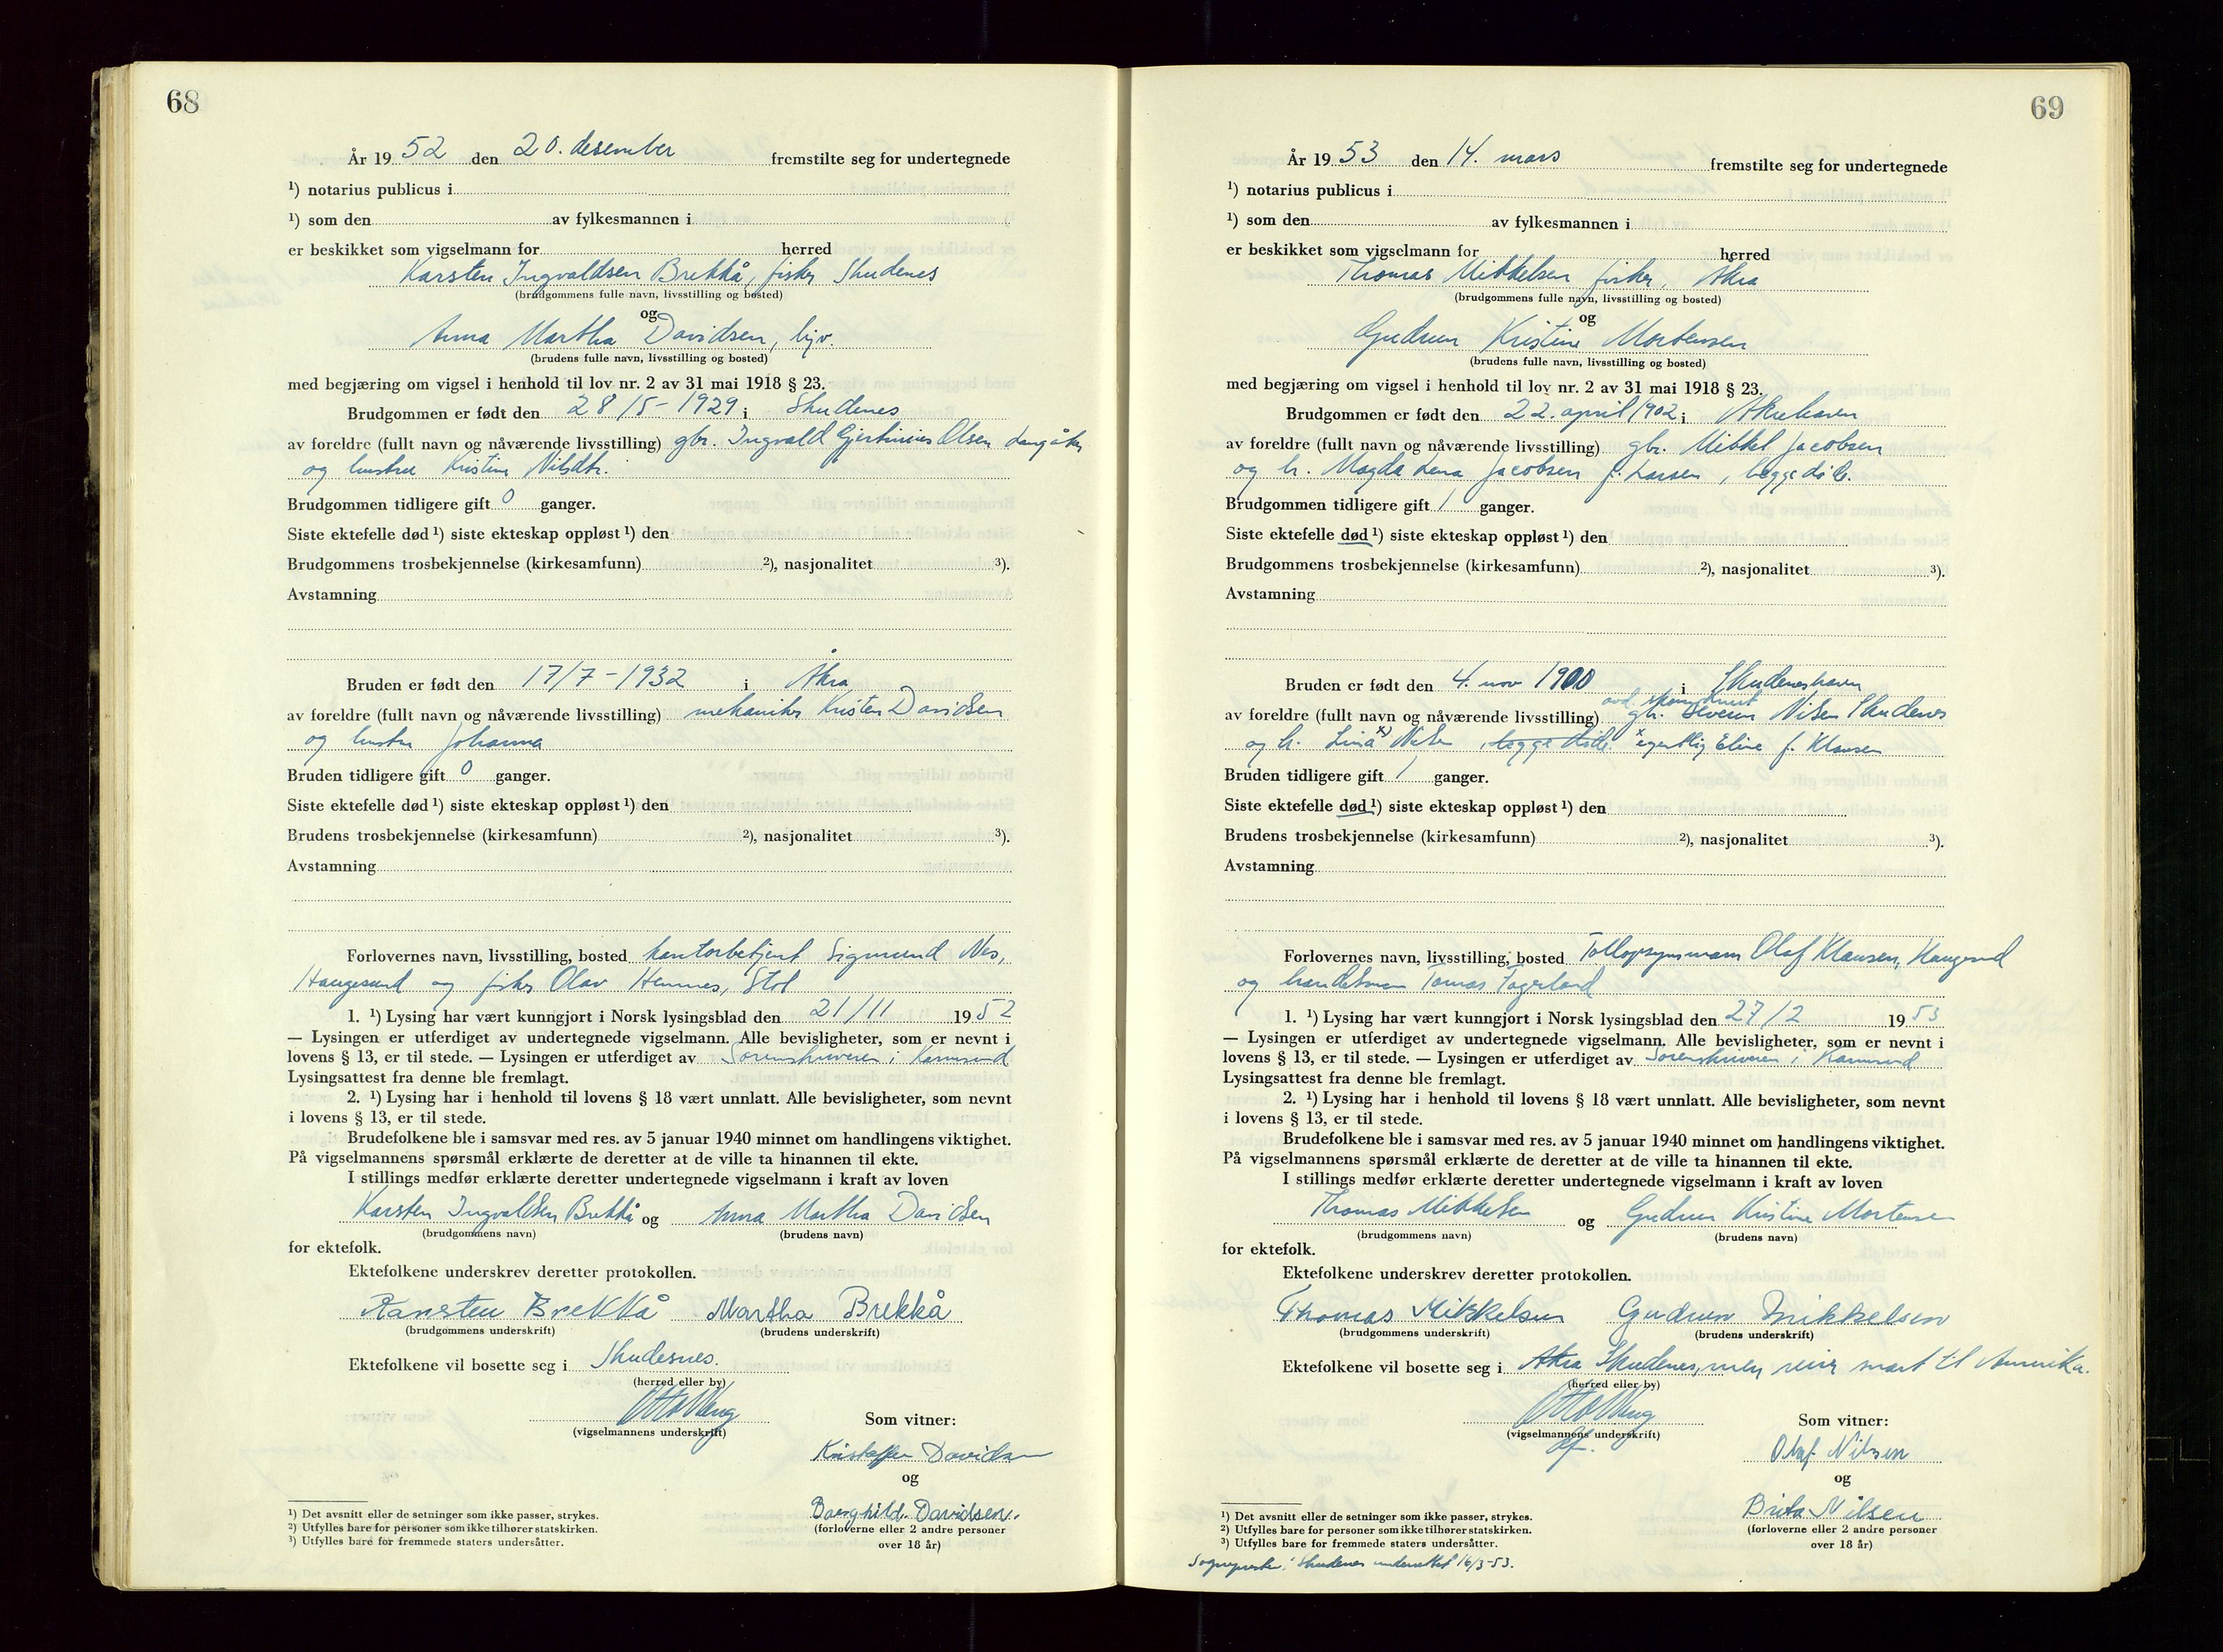 68
År 19 52 den 20. desember fremstilte seg for undertegnede
¹) notarius publicus i
¹) som den av fylkesmannen i
er beskikket som vigselmann for herred
Karsten Ingvaldsen Brekkå, fisker Skudenes
(brudgommens fulle navn, livsstilling og bosted)
og
Anna Martha Davidsen, hjv.
(brudens fulle navn, livsstilling og bosted)
med begjæring om vigsel i henhold til lov nr. 2 av 31 mai 1918 § 23.
Brudgommen er født den 28/5-1929 i Skudenes
av foreldre (fullt navn og nåværende livsstilling) gbr. Ingvald Gjertinius Olsen Langåker
og hustru Kristine Nilsdtr.
Brudgommen tidligere gift 0 ganger.
Siste ektefelle død ¹) siste ekteskap oppløst ¹) den
Brudgommens trosbekjennelse (kirkesamfunn) ²), nasjonalitet ³).
Avstamning
Bruden er født den 17/7-1932 i Åkra
av foreldre (fullt navn og nåværende livsstilling) mekaniker Kristen Davidsen
og hustru Johanna
Bruden tidligere gift 0 ganger.
Siste ektefelle død ¹) siste ekteskap oppløst ¹) den
Brudens trosbekjennelse (kirkesamfunn) ²), nasjonalitet ³).
Avstamning
Forlovernes navn, livsstilling, bosted kontorbetjent Sigmund Nes,
Haugesund og fisker Olav Hemnes, Stol
1. ¹) Lysing har vært kunngjort i Norsk lysingsblad den 21/11 19 52
— Lysingen er utferdiget av undertegnede vigselmann. Alle bevisligheter, som er nevnt i
lovens § 13, er til stede. — Lysingen er utferdiget av Sorenskriveren i Karmsund
Lysingsattest fra denne ble fremlagt.
2. ¹) Lysing har i henhold til lovens § 18 vært unnlatt. Alle bevisligheter, som nevnt
i lovens § 13, er til stede.
Brudefolkene ble i samsvar med res. av 5 januar 1940 minnet om handlingens viktighet.
På vigselmannens spørsmål erklærte de deretter at de ville ta hinannen til ekte.
I stillings medfør erklærte deretter undertegnede vigselmann i kraft av loven
Karsten Ingvaldsen Brekkå og Anna Martha Davidsen
(brudgommens navn) (brudens navn)
for ektefolk.
Ektefolkene underskrev deretter protokollen.
Karsten Brekkå Martha Brekkå
(brudgommens underskrift) (brudens underskrift)
Ektefolkene vil bosette seg i Skudesnes.
(herred eller by)
(vigselmannens underskrift)
Som vitner:
Kristoffer Davidsen
og
Borghild Davidsen.
(forloverne eller 2 andre personer
over 18 år)
¹) Det avsnitt eller de setninger som ikke passer, strykes.
²) Utfylles bare for personer som ikke tilhører statskirken.
³) Utfylles bare for fremmede staters undersåtter.
69
År 19 53 den 14. mars fremstilte seg for undertegnede
¹) notarius publicus i
¹) som den av fylkesmannen i
er beskikket som vigselmann for herred
Thomas Mikkelsen fisker, Åkra
(brudgommens fulle navn, livsstilling og bosted)
og
Gudrun Kristine Mortensen
(brudens fulle navn, livsstilling og bosted)
med begjæring om vigsel i henhold til lov nr. 2 av 31 mai 1918 § 23.
Brudgommen er født den 22. april 1902 i Åkrehavn
av foreldre (fullt navn og nåværende livsstilling) gbr. Mikkel Jacobsen
og h. Magda Lena Jacobsen f. Larsen, begge døde.
Brudgommen tidligere gift 1 ganger.
Siste ektefelle død ¹) siste ekteskap oppløst ¹) den
Brudgommens trosbekjennelse (kirkesamfunn) ²), nasjonalitet ³).
Avstamning
Bruden er født den 4. nov 1900 i Skudeneshavn
av foreldre (fullt navn og nåværende livsstilling) gbr. Severin Nilsen Skudenes
og h. Lina x) Nilsen, begge døde. x egentlig Eline f. Klausen
Bruden tidligere gift 1 ganger.
Siste ektefelle død ¹) siste ekteskap oppløst ¹) den
Brudens trosbekjennelse (kirkesamfunn) ²), nasjonalitet ³).
Avstamning
Forlovernes navn, livsstilling, bosted Tollopsynsmann Olaf Klausen, Haugesund
og handelsmann Tomas Fagerland
1. ¹) Lysing har vært kunngjort i Norsk lysingsblad den 27/2 19 53
— Lysingen er utferdiget av undertegnede vigselmann. Alle bevisligheter, som er nevnt i
lovens § 13, er til stede. — Lysingen er utferdiget av Sorenskriveren i Karmsund
Lysingsattest fra denne ble fremlagt.
2. ¹) Lysing har i henhold til lovens § 18 vært unnlatt. Alle bevisligheter, som nevnt
i lovens § 13, er til stede.
Brudefolkene ble i samsvar med res. av 5 januar 1940 minnet om handlingens viktighet.
På vigselmannens spørsmål erklærte de deretter at de ville ta hinannen til ekte.
I stillings medfør erklærte deretter undertegnede vigselmann i kraft av loven
Thomas Mikkelsen og Gudrun Kristine Mortensen
(brudgommens navn) (brudens navn)
for ektefolk.
Ektefolkene underskrev deretter protokollen.
Thomas Mikkelsen Gudrun Mikkelsen
(brudgommens underskrift) (brudens underskrift)
Ektefolkene vil bosette seg i Åkra Skudenes, men reiser snart til Amerika.
(herred eller by)
(vigselmannens underskrift)
Som vitner:
Olaf Nilsen
og
Brita Nilsen
(forloverne eller 2 andre personer
over 18 år)
¹) Det avsnitt eller de setninger som ikke passer, strykes.
²) Utfylles bare for personer som ikke tilhører statskirken.
³) Utfylles bare for fremmede staters undersåtter.
Sognepresten i Skudenes underrettet 16/3-53.